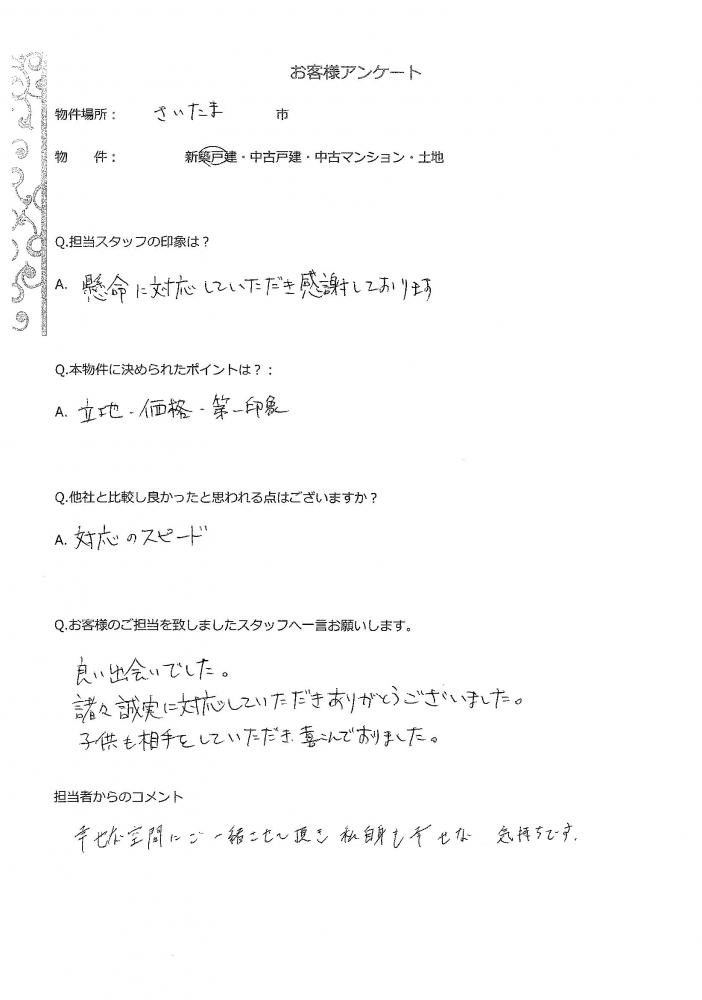 お客様アンケート
物件場所： さいたま 市
物 件： 新築戸建・中古戸建・中古マンション・土地
Q.担当スタッフの印象は？
A. 懸命に対応していただき感謝しております
Q.本物件に決められたポイントは？：
A. 立地・価格・第一印象
Q.他社と比較し良かったと思われる点はございますか？
A. 対応のスピード
Q.お客様のご担当を致しましたスタッフへ一言お願いします。
良い出会いでした。
諸々誠実に対応していただきありがとうございました。
子供も相手をしていただき、喜こんでおりました。
担当者からのコメント
幸せな空間にご一緒させて頂き 私自身も幸せな 気持ちです.